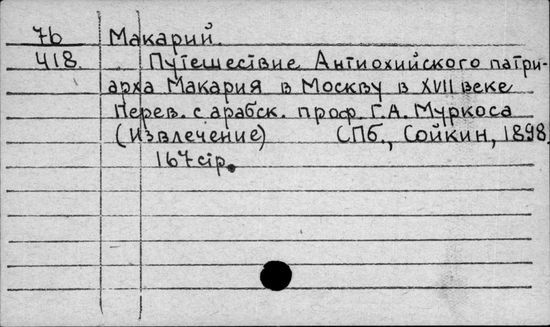 76 Макарий.
418. Путешествие Антиохийского патри-
арха Макария в Москву в XVII веке
Перев. с арабск. проф. Г.А. Муркоса
(извлечение) СПб., Сойкин, 1898.
167 стр.